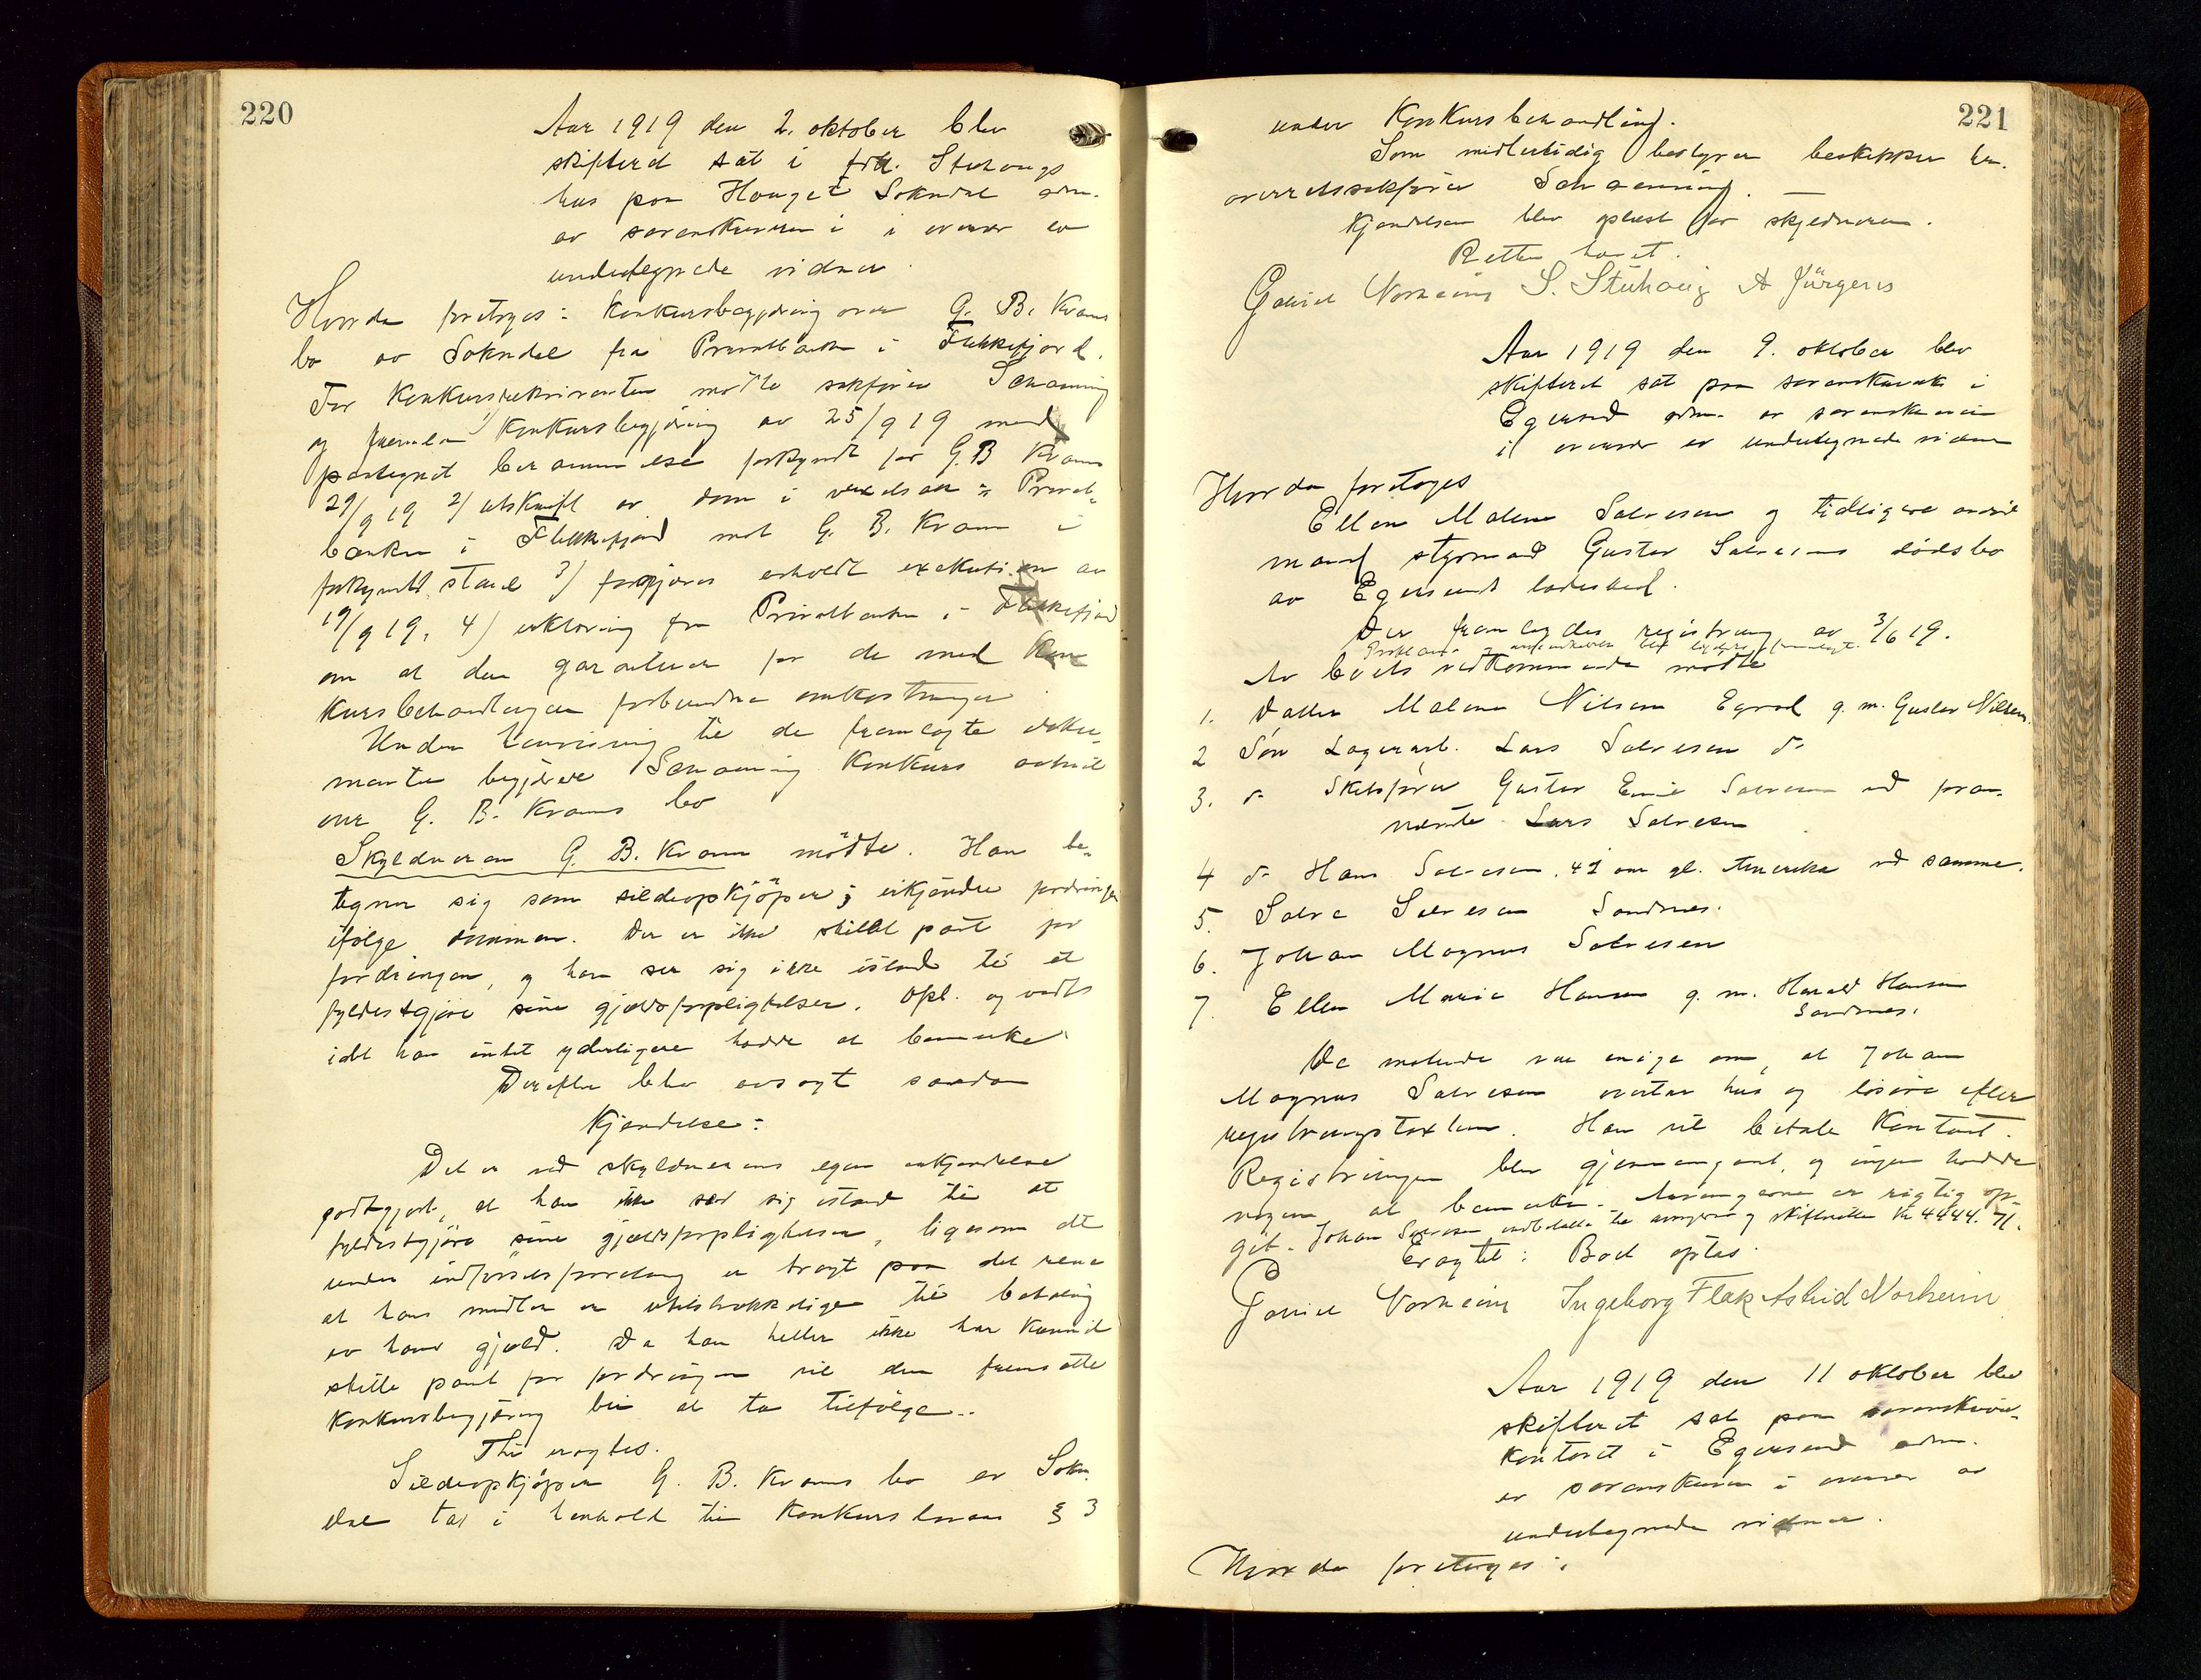 220
Aar 1919 den 2. oktober blev
skifteret sat i frk. Stuhaugs
hus paa Hauget Sokndal adm.
av sorenskriveren i overvær av
undertegnede vidner.
Hvorda foretoges: Konkursbegjæring over G. B. Krams
bo av Sokndal fra Privatbanken i Flekkefjord.
For Konkursrekvirenten mødte sakfører Schanning
og fremla 1) Konkursbegjæring av 25/9 19 med
paategnet berammelse forkyndt for G. B. Kram
29/9 19 2) utskrift av dom i vexelsak: Privat-
banken i Flekkefjord mot G. B. Kram i
forkyndt stand 3) forgjæves avholdt exekution av
19/9 19, 4) erklæring fra Privatbanken i Flekkefjord
om at den garanterer for de med Kon
kursbehandlingen forbundne omkostninger
Under henvisning til de fremlagte doku-
menter begjærer Schanning Konkurs aabnet
over G. B. Krams bo
Skyldneren G. B. Kram mødte. Han be-
tegner sig som sildeopkjøper; erkjendte fordringen
ifølge dommen. Der er ikke stillet pant for
fordringen, og han ser sig ikke istand til at
fyldestgjøre sine gjeldsforpligtelser. Opl. og vedt.
idet han intet yderligere hadde at bemerke
Derefter blev avsagt saadan
Kjendelse:
Det er ved skyldnerens egen erkjendelse
godtgjort, at han ikke ser sig istand til at
fyldestgjøre sine gjeldsforpligtelser, ligesom det
under
at hans midler er utilstrækkelige til betaling
av hans gjæld. Da han heller ikke har kunnet
stille pant for fordringen vil den fremsatte
Konkursbegjæring bli at ta tilfølge.
Thi eragtes.
Sildeopkjøper G. B. Krams bo av Sokn
dal tas i henhold til Konkurslovens § 3
221
under Konkursbehandling.
Som midlertidig bestyrer beskikkes hr.
overretssakfører Schanning.
Kjendelsen blev oplæst for skyldneren.
Retten hævet.
Gabriel Norheim S. Stuhaug A Jürgens
Aar 1919 den 9. oktober blev
skifteret sat paa sorenskriverk. i
Egersund adm. av sorenskriveren
i overvær av undertegnede vidner
Hvorda foretoges
Ellen Malene Salvesen og tidligere avdøde
mand styrmand Gustav Salvesens dødsbo
av Egersund ladested.
Der fremlagdes registrering av 3/6 19.
Av boets vedkommende mødte
1. Datter Malene Nilsen Egersd g. m. Gustav Nilsen.
2 Søn Lagerarb. Lars Salvesen do
3. do Skibsfører Gustav Emil Salvesen ved foran-
nævnte Lars Salvesen
4 do Hans Salvesen, 42 aar gl. Amerika ved samme.
5. Salve Salvesen Sandnes.
6. Johan Magnus Salvesen
7. Ellen Marie Hansen g. m. Harald Hansen
Sandnes.
De møtende var enige om, at Johan
Magnus Salvesen overtar hus og løsøre efter
registreringstaxten. Han vil betale Kontant.
Registreringen blev gjennemgaat, og ingen hadde
noget at bemerke. Arvingerne er rigtig op-
git. Johan Salvesen indbetalte til arvinger og skifteretten Kr 4444. 71.
Eragtet: Boet optas.
Gabriel Norheim Ingeborg Fløk Astrid Norheim
Aar 1919 den 11 oktober blev
skifteret sat paa sorenskriver-
kontoret i Egersund adm.
av sorenskriveren i overvær av
undertegnede vidner.
Hvorda foretoges: